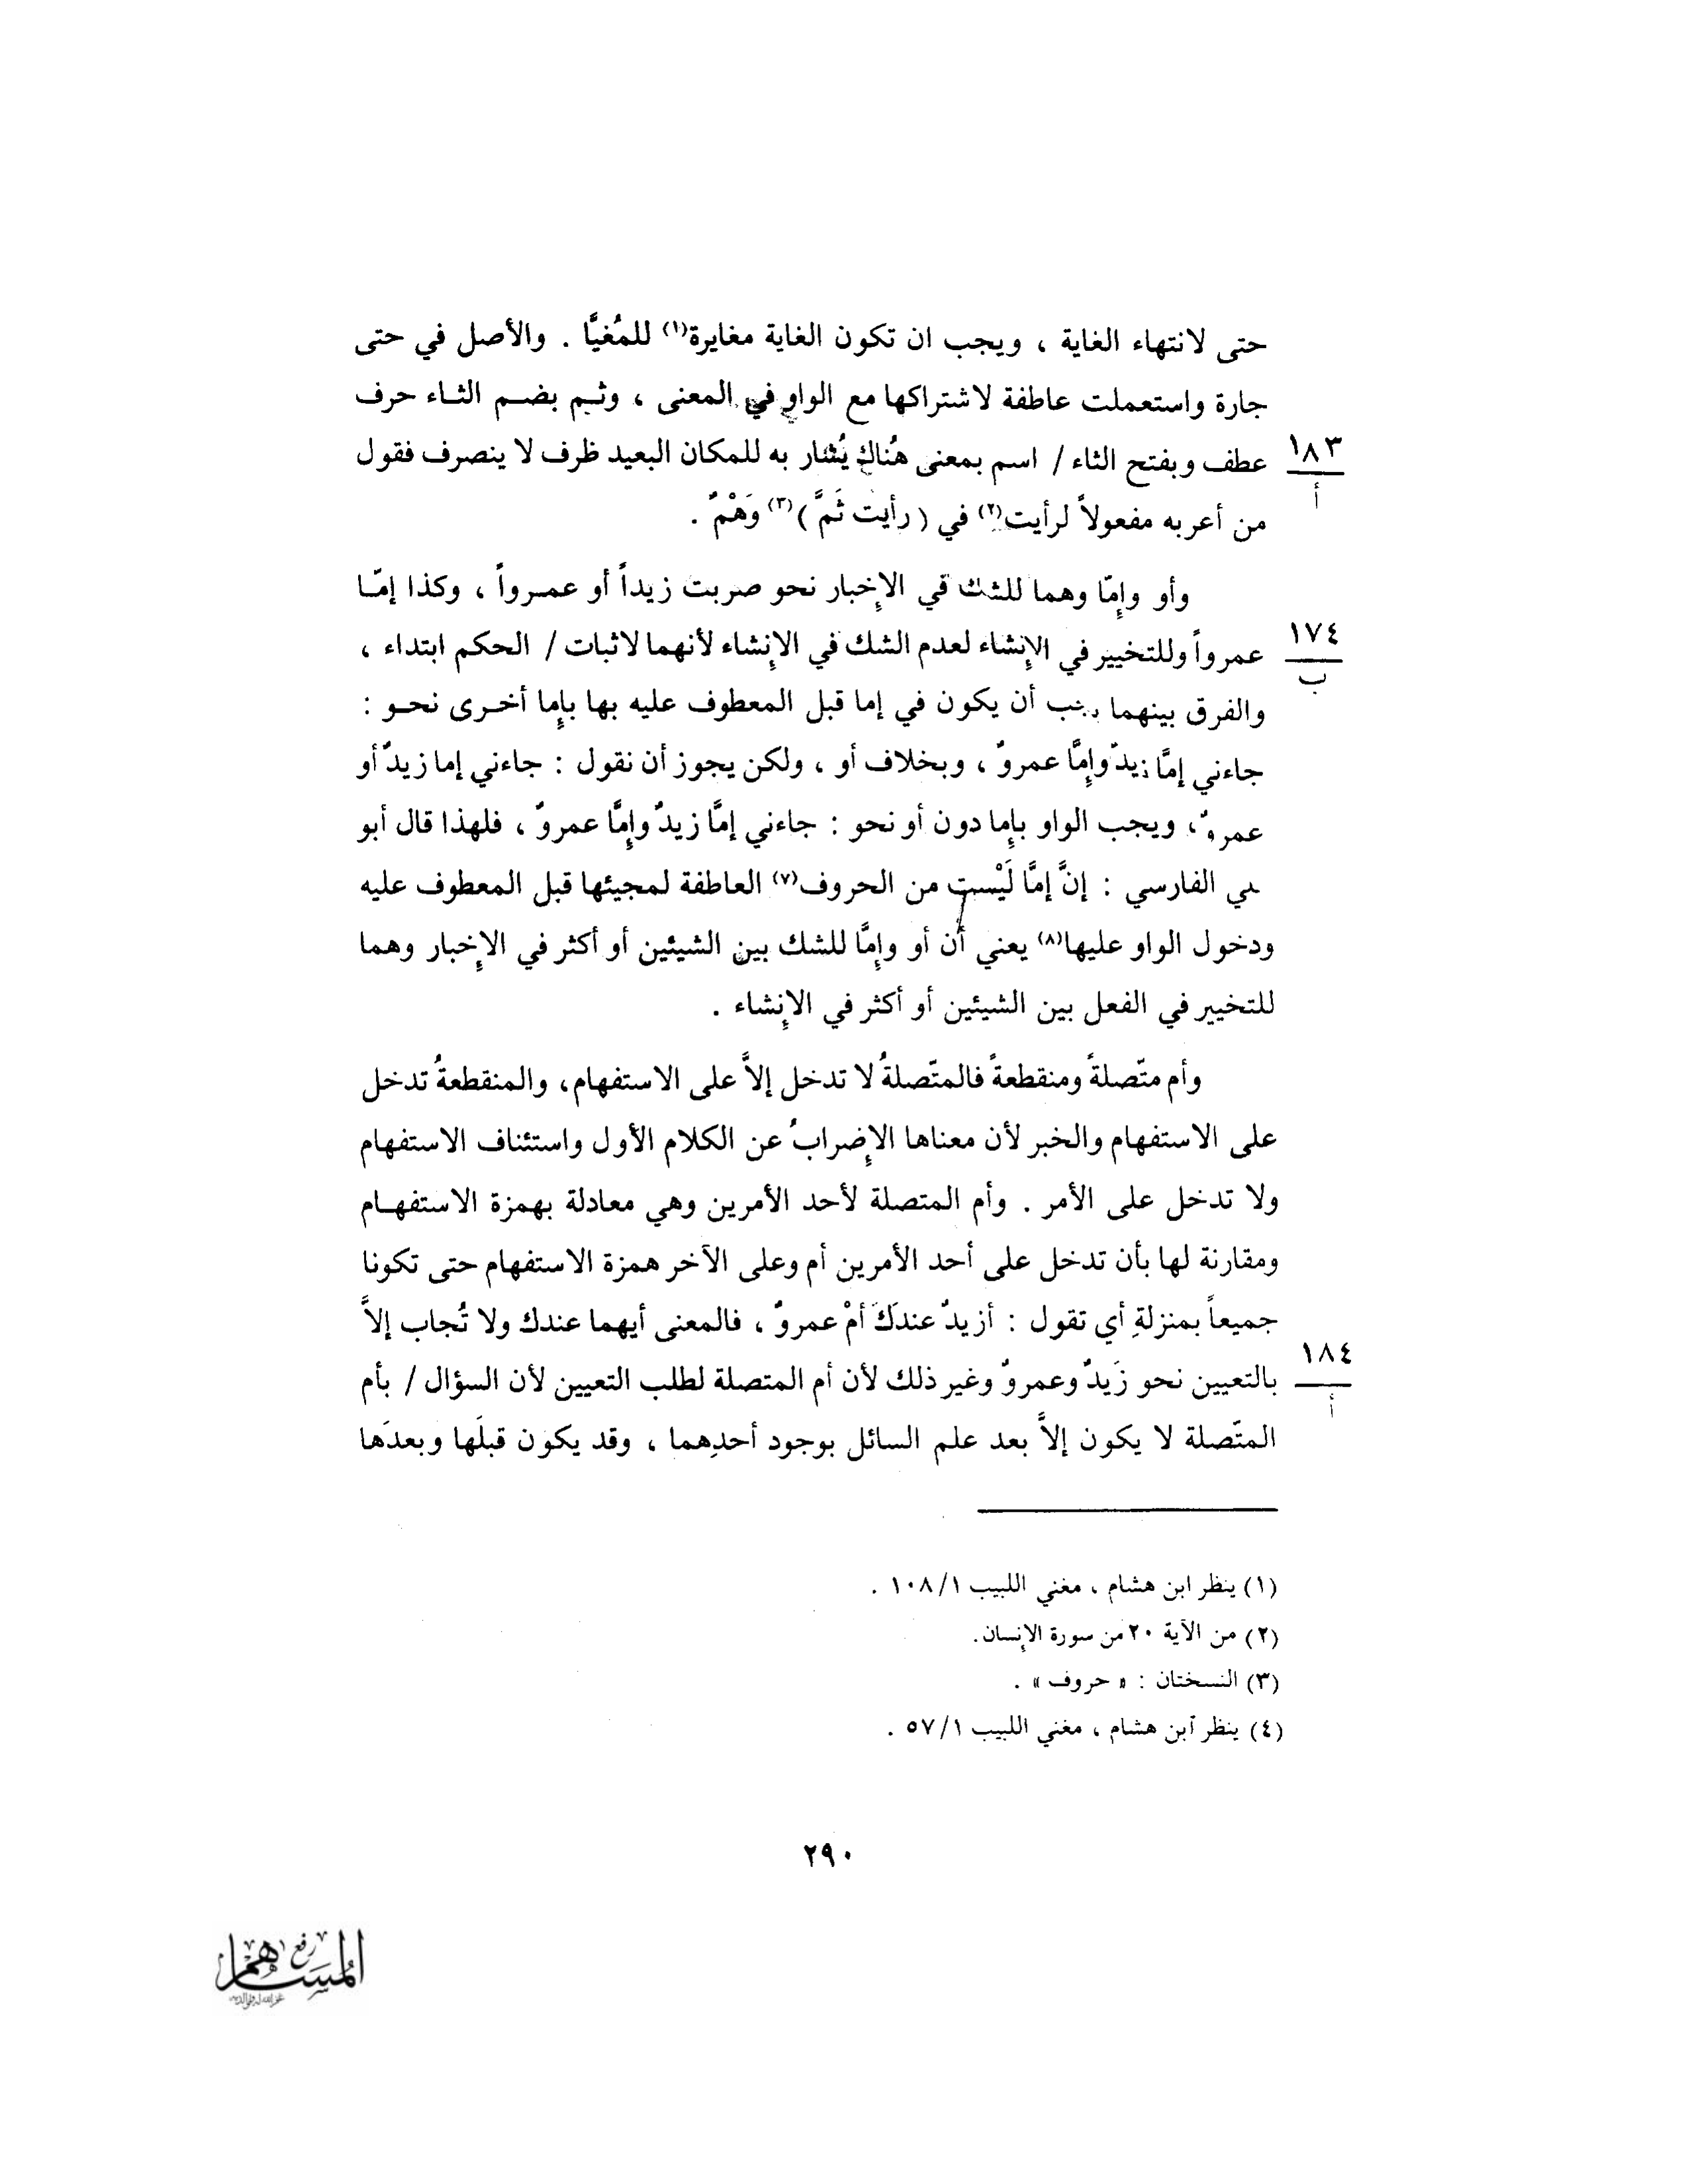 حتى لانتهاء الغاية ، ويجب ان تكون الغاية مغايرة(١) للمُغيَّا . والأصل في حتى
جارة واستعملت عاطفة لاشتراكها مع الواو في المعنى ، وثم بضم الثاء حرف
١٨٣
أ
عطف وبفتح الثاء / اسم بمعنى هُناك يُشار به للمكان البعيد ظرف لا ينصرف فقول
من أعربه مفعولاً لرأيت(٢) في ( رأيت ثَمَّ )(٣) وَهْمٌ .
وأو وإمّا وهما للشك في الإخبار نحو ضربت زيداً أو عمرواً ، وكذا إمّا
١٧٤
ب
عمرواً وللتخيير في الإنشاء لعدم الشك في الإنشاء لأنهما لاثبات / الحكم ابتداء ،
والفرق بينهما يجب أن يكون في إما قبل المعطوف عليه بها بإما أخرى نحو :
جاءني إمَّا زيدٌ وإمَّا عمروٌ ، وبخلاف أو ، ولكن يجوز أن نقول : جاءني إما زيدٌ أو
عمروٌ ، ويجب الواو بإما دون أو نحو : جاءني إمَّا زيدٌ وإمَّا عمروٌ ، فلهذا قال أبو
الفارسي : إنَّ إمَّا لَيْست من الحروف(٧) العاطفة لمجيئها قبل المعطوف عليه
ودخول الواو عليها(٨) يعني أن أو وإمَّا للشك بين الشيئين أو أكثر في الإخبار وهما
للتخيير في الفعل بين الشيئين أو أكثر في الإنشاء .
وأم متّصلةً ومنقطعةً فالمتّصلةُ لا تدخل إلاَّ على الاستفهام، والمنقطعةُ تدخل
على الاستفهام والخبر لأن معناها الإضرابُ عن الكلام الأول واستئناف الاستفهام
ولا تدخل على الأمر . وأم المتصلة لأحد الأمرين وهي معادلة بهمزة الاستفهام
ومقارنة لها بأن تدخل على أحد الأمرين أم وعلى الآخر همزة الاستفهام حتى تكونا
جميعاً بمنزلةِ أي تقول : أزيدٌ عندَكَ أمْ عمروٌ ، فالمعنى أيهما عندك ولا تُجاب إلاَّ
١٨٤
أ
بالتعيين نحو زَيدٌ وعمروٌ وغير ذلك لأن أم المتصلة لطلب التعيين لأن السؤال / بأم
المتّصلة لا يكون إلاَّ بعد علم السائل بوجود أحدِهما ، وقد يكون قبلَها وبعدَها
(١) ينظر ابن هشام ، مغني اللبيب ١٠٨/١ .
(٢) من الآية ٢٠ من سورة الإنسان.
(٣) النسختان : « حروف » .
(٤) ينظر ابن هشام ، مغني اللبيب ٥٧/١ .
٢٩٠
رفع
المساهم